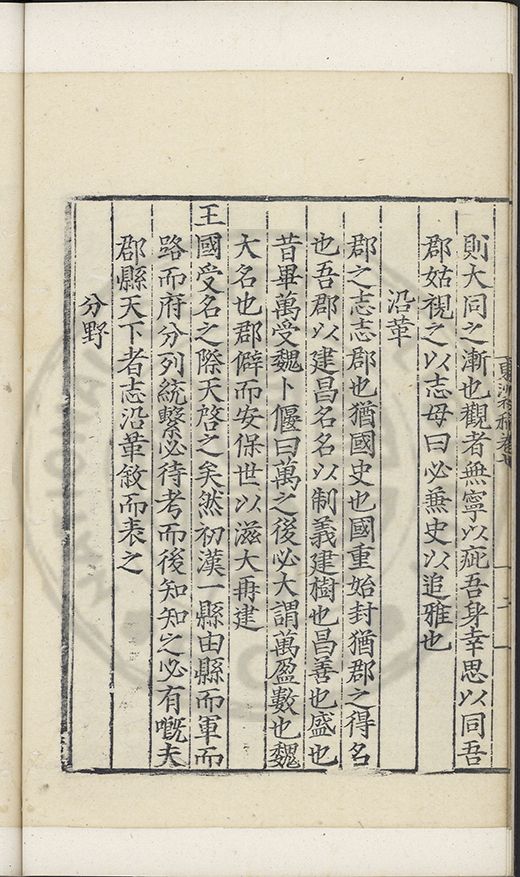 則大同之漸也觀者無寧以疵吾身幸思以同吾
郡姑視之以志毋曰必兼史以追雅也
沿革
郡之志志郡也猶國史也國重始封猶郡之得名
也吾郡以建昌名名以制義建樹也昌善也盛也
昔畢萬受魏卜偃曰萬之後必大謂萬盈數也魏
大名也郡僻而安保世以滋大再建
王國受名之際天啓之矣然初漢一縣由縣而軍而
路而府分列統繫必待考而後知知之必有嘅夫
郡縣天下者志沿革敘而表之
分野